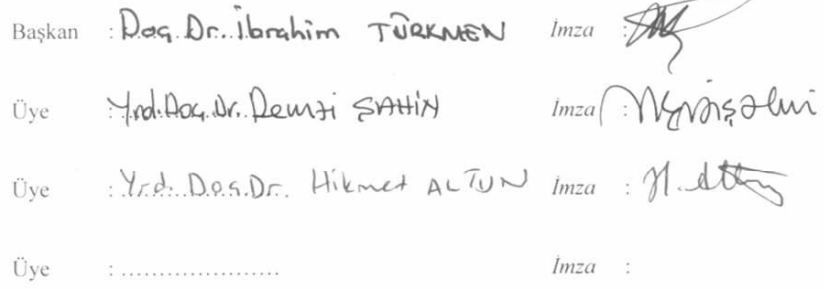 Başkan : Doç. Dr. İbrahim TÜRKMEN İmza :
Üye : Yrd. Doç. Dr. Remzi ŞAHİN İmza :
Üye : Yrd. Doç. Dr. Hikmet ALTUN İmza : H. Altun
Üye : ..................... İmza :